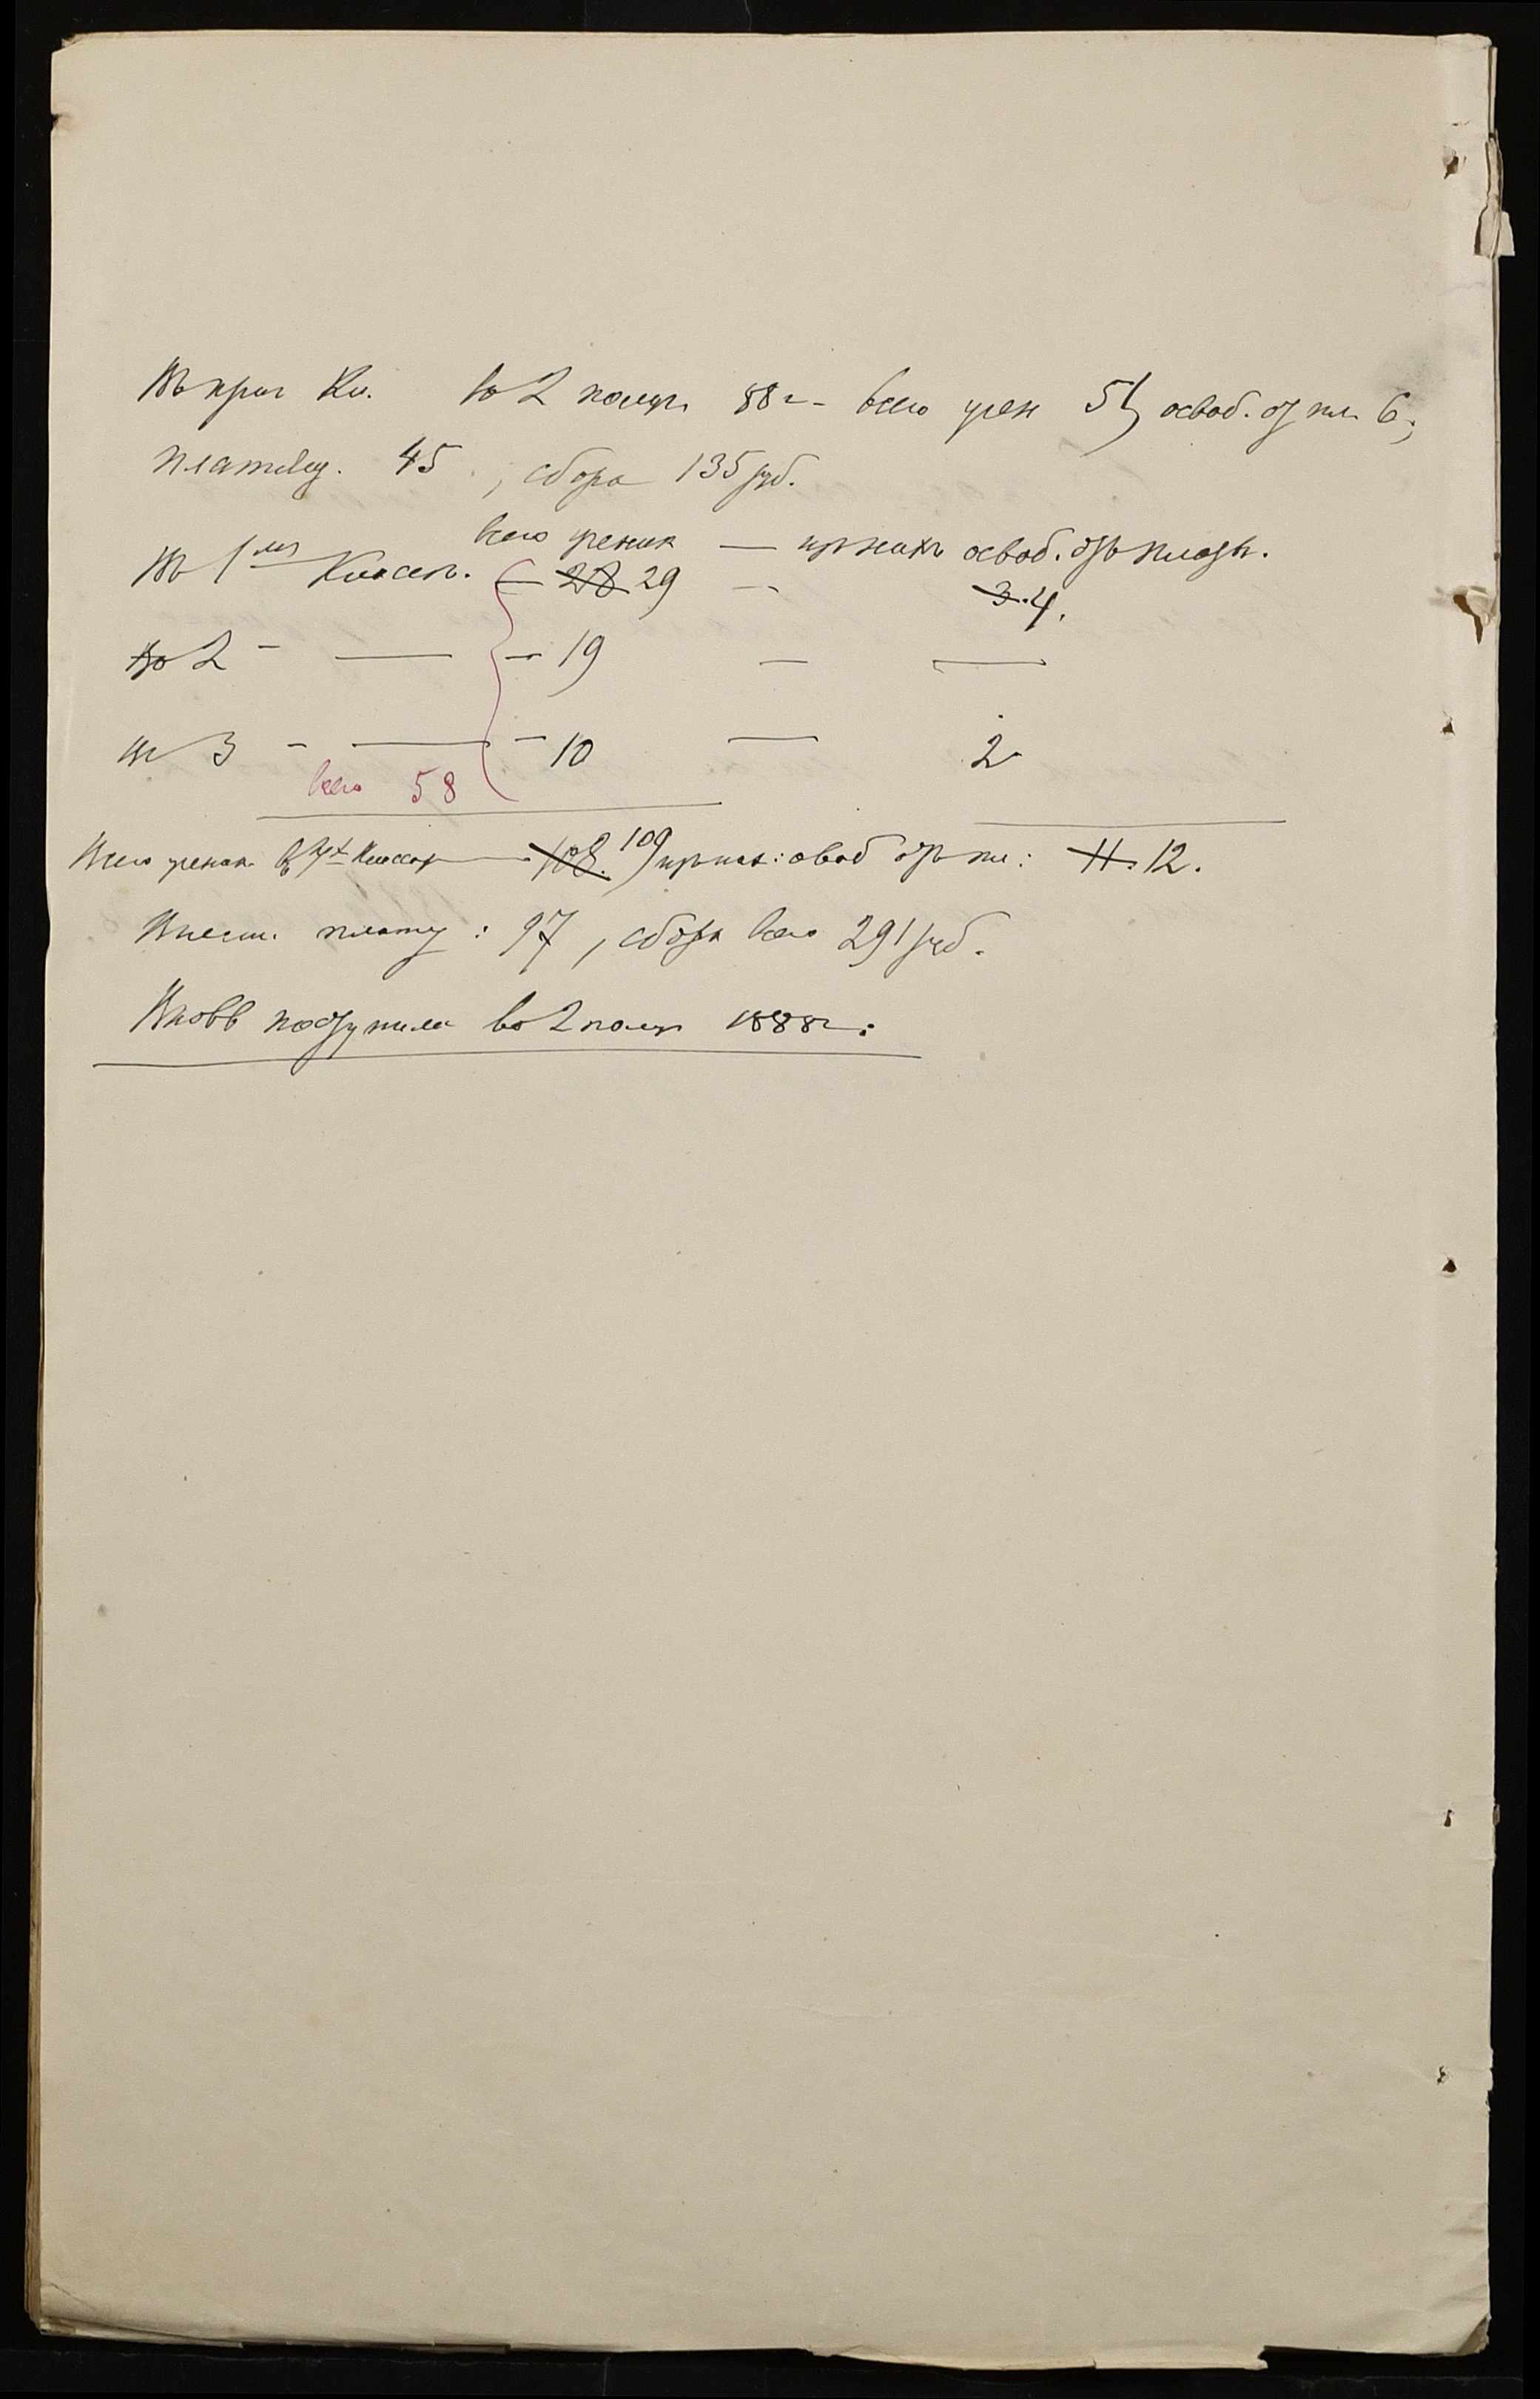 Въ приг Кл. во 2 полуг. 88 г. - всего учен 51, освоб. от пл. 6;
платящ. 45, сбора 135 руб.
всего ученик — из нихъ освоб. отъ платы.
Въ 1мъ Классѣ. — 28 29 — 3. 4.
Во 2 - — - 19 — —
въ 3 - — - 10 — 2
всего 58
Всего ученик. в 4хъ Классах — 108. 109 из них: освоб отъ пл: 11. 12.
Внесш. плату: 97, сбора всего 291 руб.
Вновь поступило во 2 полуг 1888 г.: